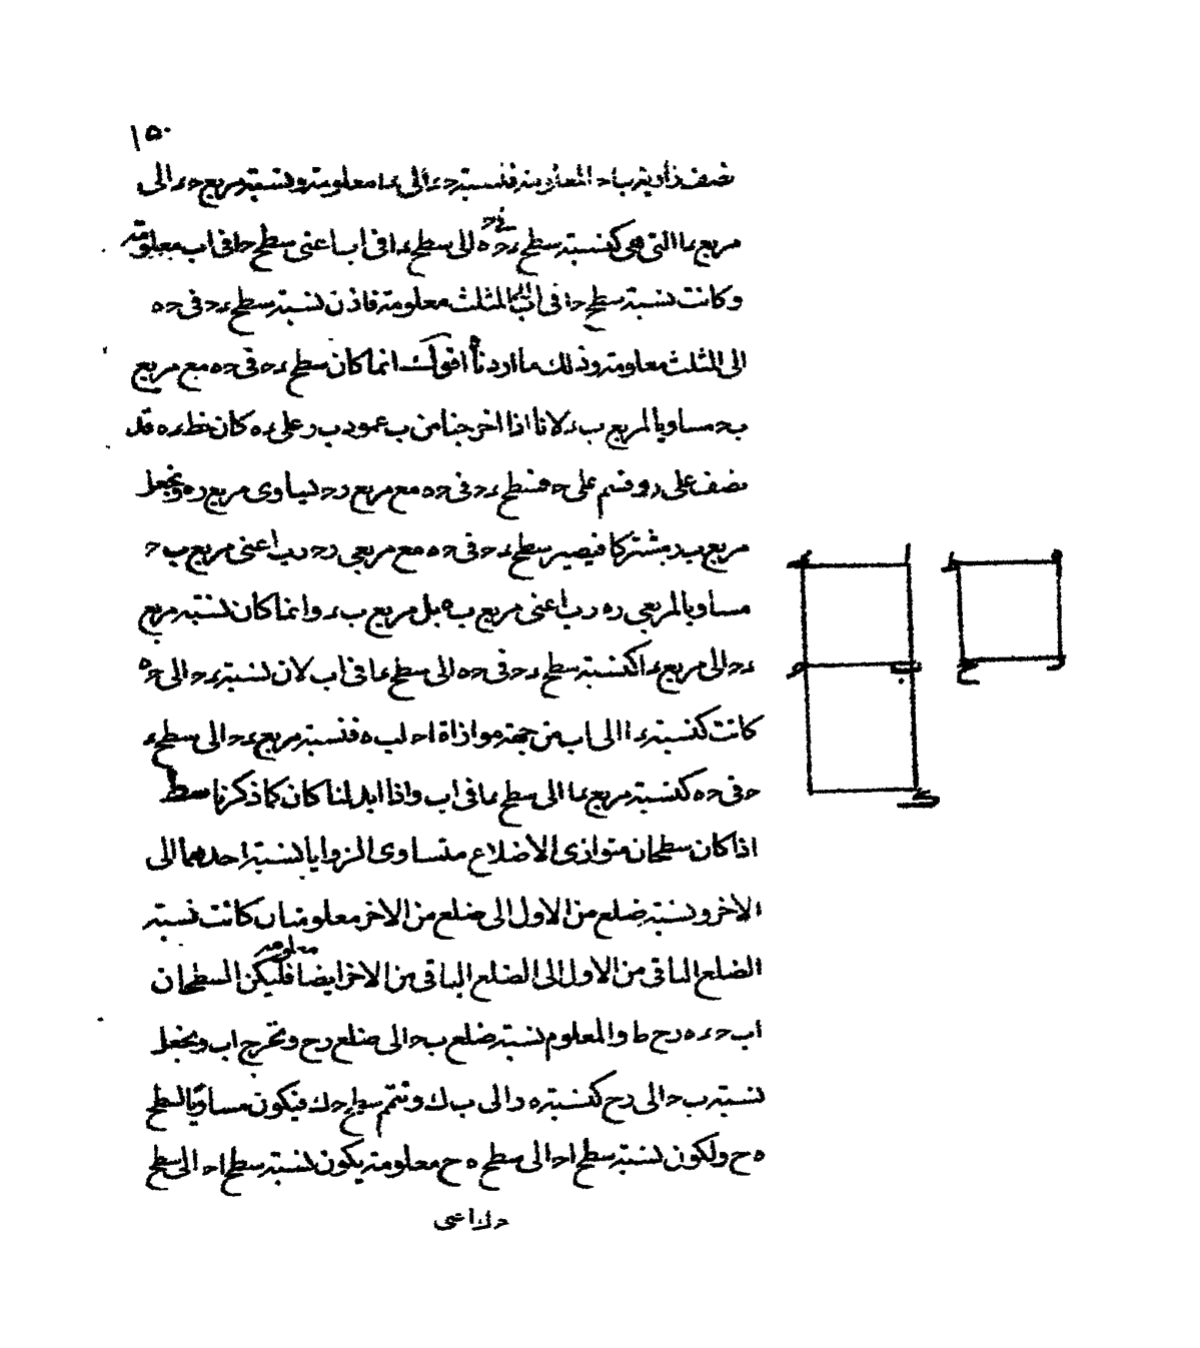 ١٥٠
نصف زاوية باحـ المعلومة فنسبة حـء الى ءا معلومة ونسبة مربع حـء الى
مربع ءا التى هى كنسبة سطح ءحـ فى حـه الى سطح ءا فى اب اعنى سطح حا فى اب معلومة
وكانت نسبة سطح حا فى اب الى المثلث معلومة فاذن نسبة سطح ءحـ فى حـه
الى المثلث معلومة وذلك ما اردناه اقول انما كان سطح ءحـ فى حـه مع مربع
بحـ مساويا لمربع بء لانا اذا اخرجنا من ب عمود ب ر على ءه كان خط ءه قد
نصف على ر وقسم على حـ فسطح ءحـ فى حـه مع مربع رحـ يساوى مربع ره ونجعل
مربع ب ر مشتركا فيصير سطح ءحـ فى حـه مع مربعى رحـ رب اعنى مربع ب حـ
مساويا لمربعى ره رب اعنى مربع ب ه بل مربع بء وانما كان نسبة مربع
ءحـ الى مربع ءا كنسبة سطح ءحـ فى حـه الى سطح ءا فى اب لان نسبة ءحـ الى حـه
كانت كنسبة ءا الى اب من جهة موازاة احـ لب ه فنسبة مربع ءحـ الى سطح ء
حـ فى حـه كنسبة مربع ءا الى سطح ءا فى اب واذا ابدلنا كان كما ذكرنا سط
اذا كان سطحان متوازى الاضلاع متساوى الزوايا بنسبة احدهما الى
الاخر ونسبة ضلع من الاول الى ضلع من الاخر معلومتان كانت نسبة
الضلع الباقى من الاول الى الضلع الباقى من الاخر ايضا معلومة فليكن السطحان
اب حـء ه رح ط والمعلوم نسبة ضلع بحـ الى ضلع رح ونخرج اب ونجعل
نسبة ب حـ الى رح كنسبة ه ر الى ب ك ونتم سطح حـ ك فيكون مساويا لسطح
ه ح ولكون نسبة سطح احـ الى سطح ه ح معلومة يكون نسبة سطح احـ الى سطح
حـ ك اعنى